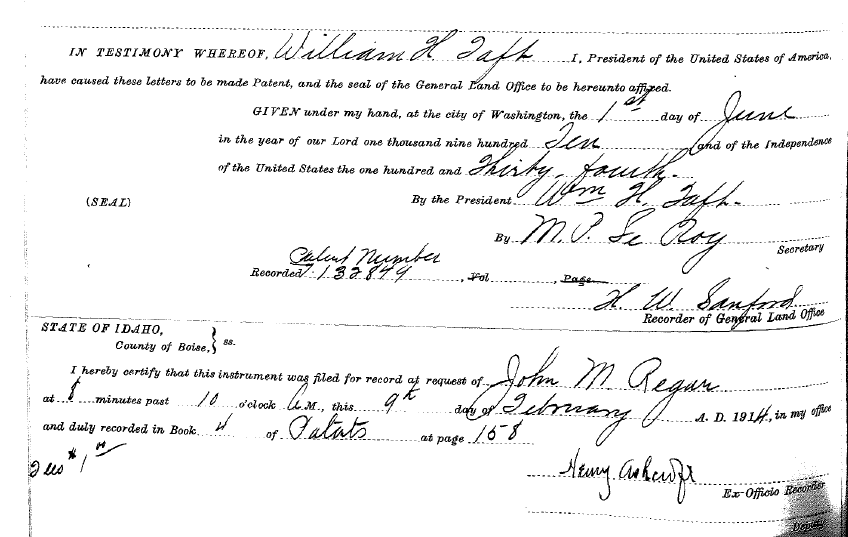 IN TESTIMONY WHEREOF, William H Taft I, President of the United States of America,
have caused these letters to be made Patent, and the seal of the General Land Office to be hereunto affixed.
GIVEN under my hand, at the city of Washington, the 1st day of June
in the year of our Lord one thousand nine hundred Ten and of the Independence
of the United States the one hundred and Thirty-fourth.
(SEAL) By the President Wm H. Taft.
By M. P. Le Roy Secretary
Patent Number
Recorded 132849, Vol , Page
H. W. Sanford
Recorder of General Land Office
STATE OF IDAHO,
County of Boise, } ss.
I hereby certify that this instrument was filed for record at request of John M Regan
at 8 minutes past 10 o'clock A M., this 9th day of February A. D. 1914, in my office
and duly recorded in Book 4 of Patents at page 158
Fees $1
Henry Ashcroft
Ex-Officio Recorder
Deputy